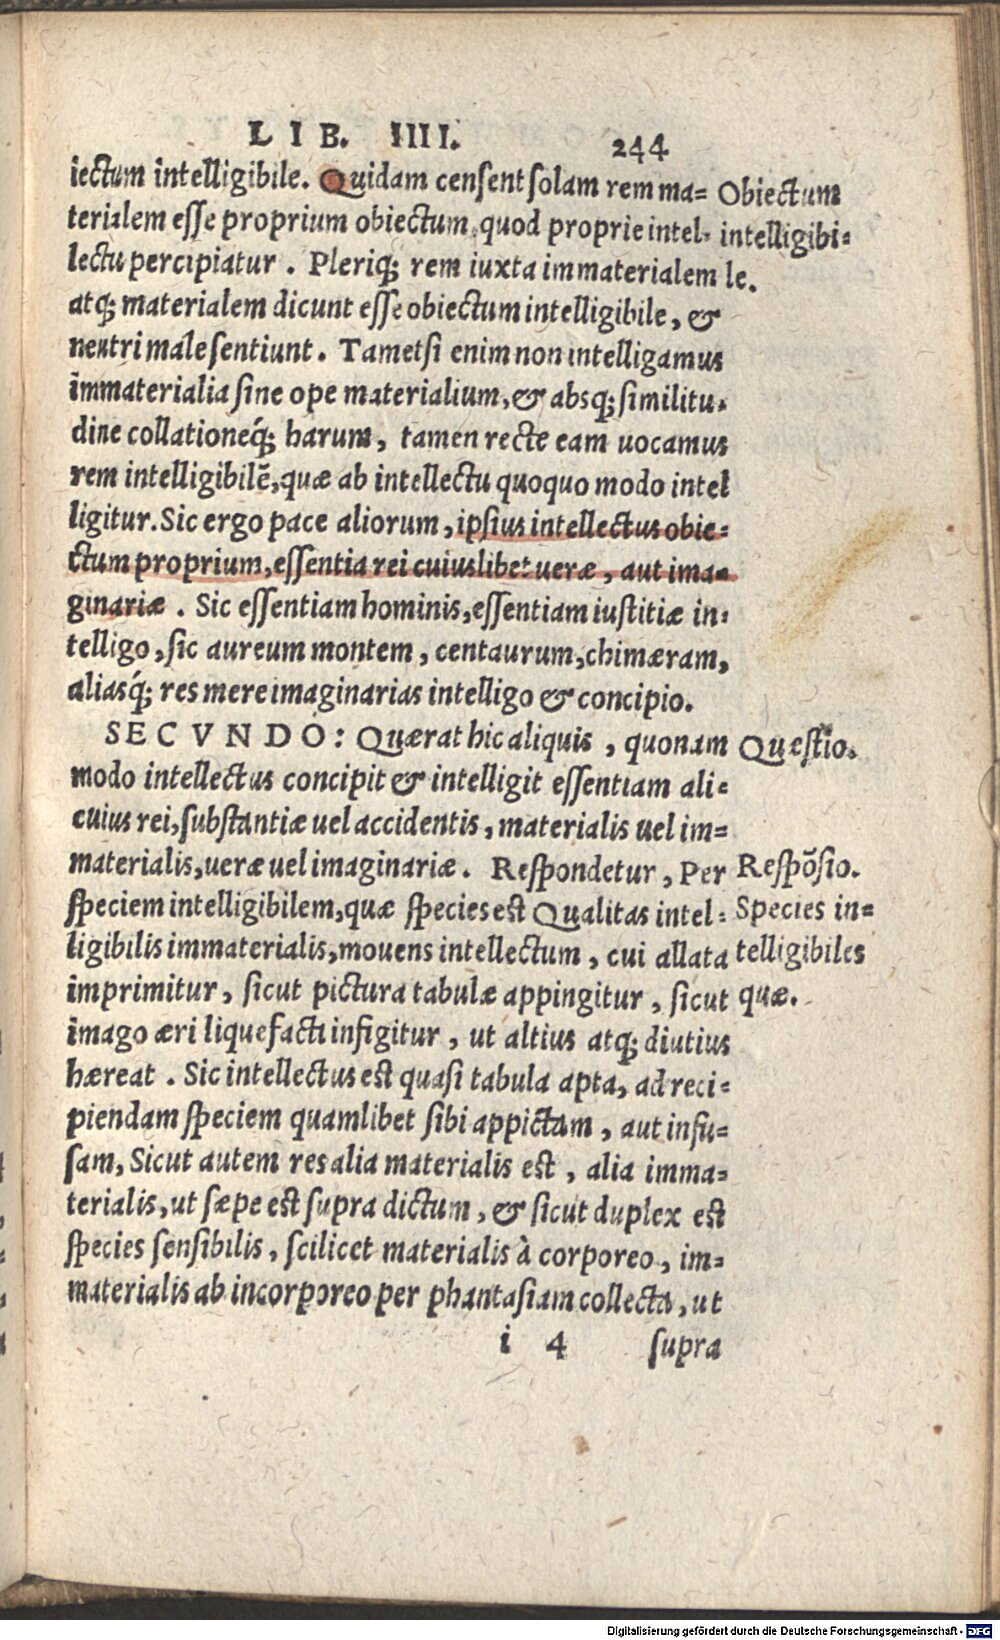 LIB. IIII. 244
iectum intelligibile. Quidam censent solam rem ma= Obiectum
terialem esse proprium obiectum, quod proprie intel- intelligibi=
lectu percipiatur. Pleriq; rem iuxta immaterialem le.
atq; materialem dicunt esse obiectum intelligibile, &
neutri male sentiunt. Tametsi enim non intelligamus
immaterialia sine ope materialium, & absq; similitu-
dine collationeq́; harum, tamen recte eam uocamus
rem intelligibilē, quæ ab intellectu quoquo modo intel
ligitur. Sic ergo pace aliorum, ipsius intellectus obie=
ctum proprium, essentia rei cuiuslibet ueræ, aut ima=
ginariæ. Sic essentiam hominis, essentiam iustitiæ in=
telligo, sic aureum montem, centaurum, chimæram,
aliasq́; res mere imaginarias intelligo & concipio.
SECVNDO: Quærat hic aliquis, quonam Quæstio.
modo intellectus concipit & intelligit essentiam ali=
cuius rei, substantiæ uel accidentis, materialis uel im=
materialis, ueræ uel imaginariæ. Respondetur, Per Respōsio.
speciem intelligibilem, quæ species est Qualitas intel= Species in=
ligibilis immaterialis, mouens intellectum, cui allata telligibiles
imprimitur, sicut pictura tabulæ appingitur, sicut quæ.
imago æri liquefacti infigitur, ut altius atq; diutius
hæreat. Sic intellectus est quasi tabula apta, ad reci=
piendam speciem quamlibet sibi appictam, aut infu=
sam, Sicut autem res alia materialis est, alia imma=
terialis, ut sæpe est supra dictum, & sicut duplex est
species sensibilis, scilicet materialis à corporeo, im=
materialis ab incorporeo per phantasiam collecta, ut
i 4 supra
Digitalisierung gefördert durch die Deutsche Forschungsgemeinschaft - DFG